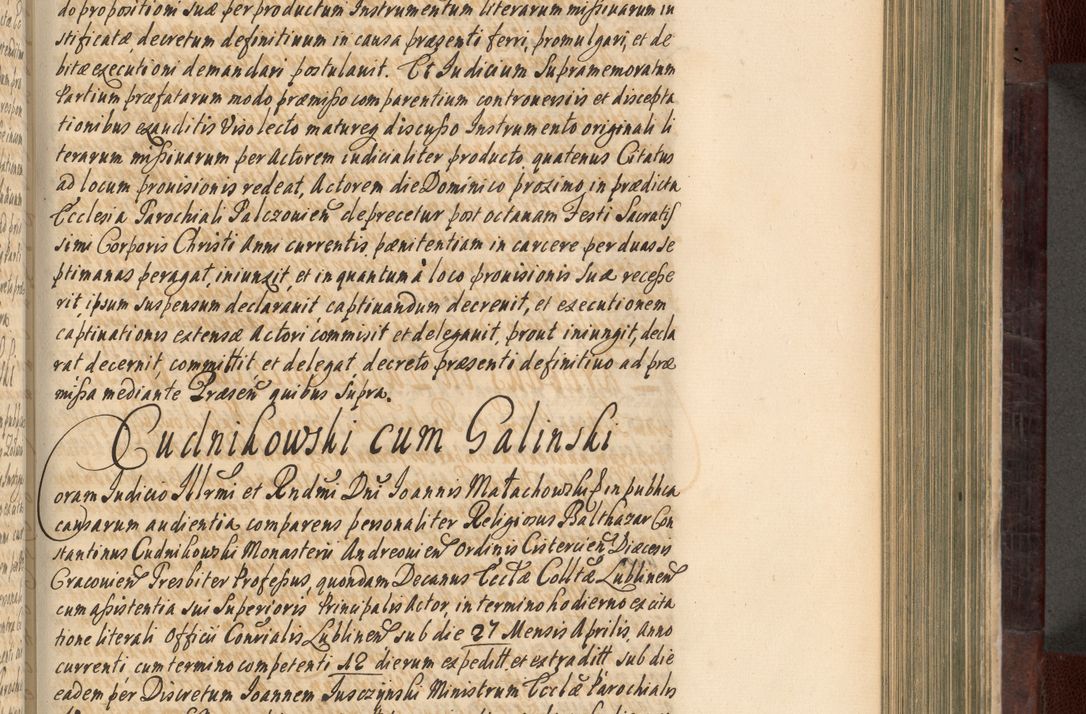 do propositioni suæ per productum Instrumentum literarum missivarum iu
stificatæ, decretum definitivum in causa præsenti ferri, promulgari, et de
bitæ executioni demandari postulavit. Et Iudicium Supramemoratum
Partium præfatarum modo præmisso comparentium controversiis et discepta
tionibus exauditis Viso lecto matureq discusso Instrumento originali li
terarum missivarum per Actorem iudicialiter producto, quatenus Citatus
ad locum provisionis redeat, Actorem die Dominico proximo, in prædicta
Ecclesia Parochiali Palczovien deprecetur post octavam Festi Sacratis
simi Corporis Christi Anni currentis pænitentiam in carcere per duas se
ptimanas peragat, iniunxit, et in quantum à loco provisionis suæ recesse
rit, ipsum suspensum declaravit, captivandum decrevit, et executionem
captivationis extensæ Actori commisit et delegavit, prout iniungit, decla
rat decernit, committit et delegat decreto præsenti definitivo ad præ
missa mediante Præsen quibus supra.
Cudnikowski cum Galinski
Coram Iudicio Illrmi et Rndmi Dni Ioannis Małachowski in publica
causarum audientia comparens personaliter Religiosus Balthazar Con
stantinus Cudnikowski Monasterii Andreovien Ordinis Cistercien Diæcesis
Cracovien Presbiter Professus, quondam Decanus Ecclæ Colltæ Lublinen
cum assistentia sui Superioris Principalis Actor, in termino hodierno ex cita
tione literali Officii Convialis Lublinen sub die 27 Mensis Aprilis Anno
currenti cum termino competenti 12 dierum expeditt. et extraditt sub die
eadem per Discretum Ioannem Tusczynski Ministrum Ecclæ Parochialis